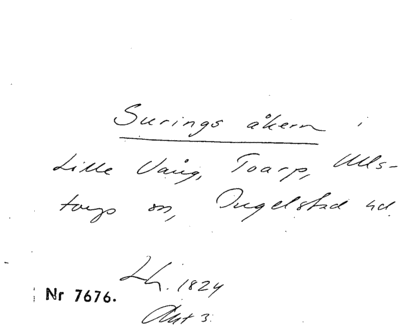 Surings åkern i
Lille Vång, Toarp, Ulls-
torps sn, Ingelstad hd.
Lh. 1824
Nr 7676.
Akt 3.